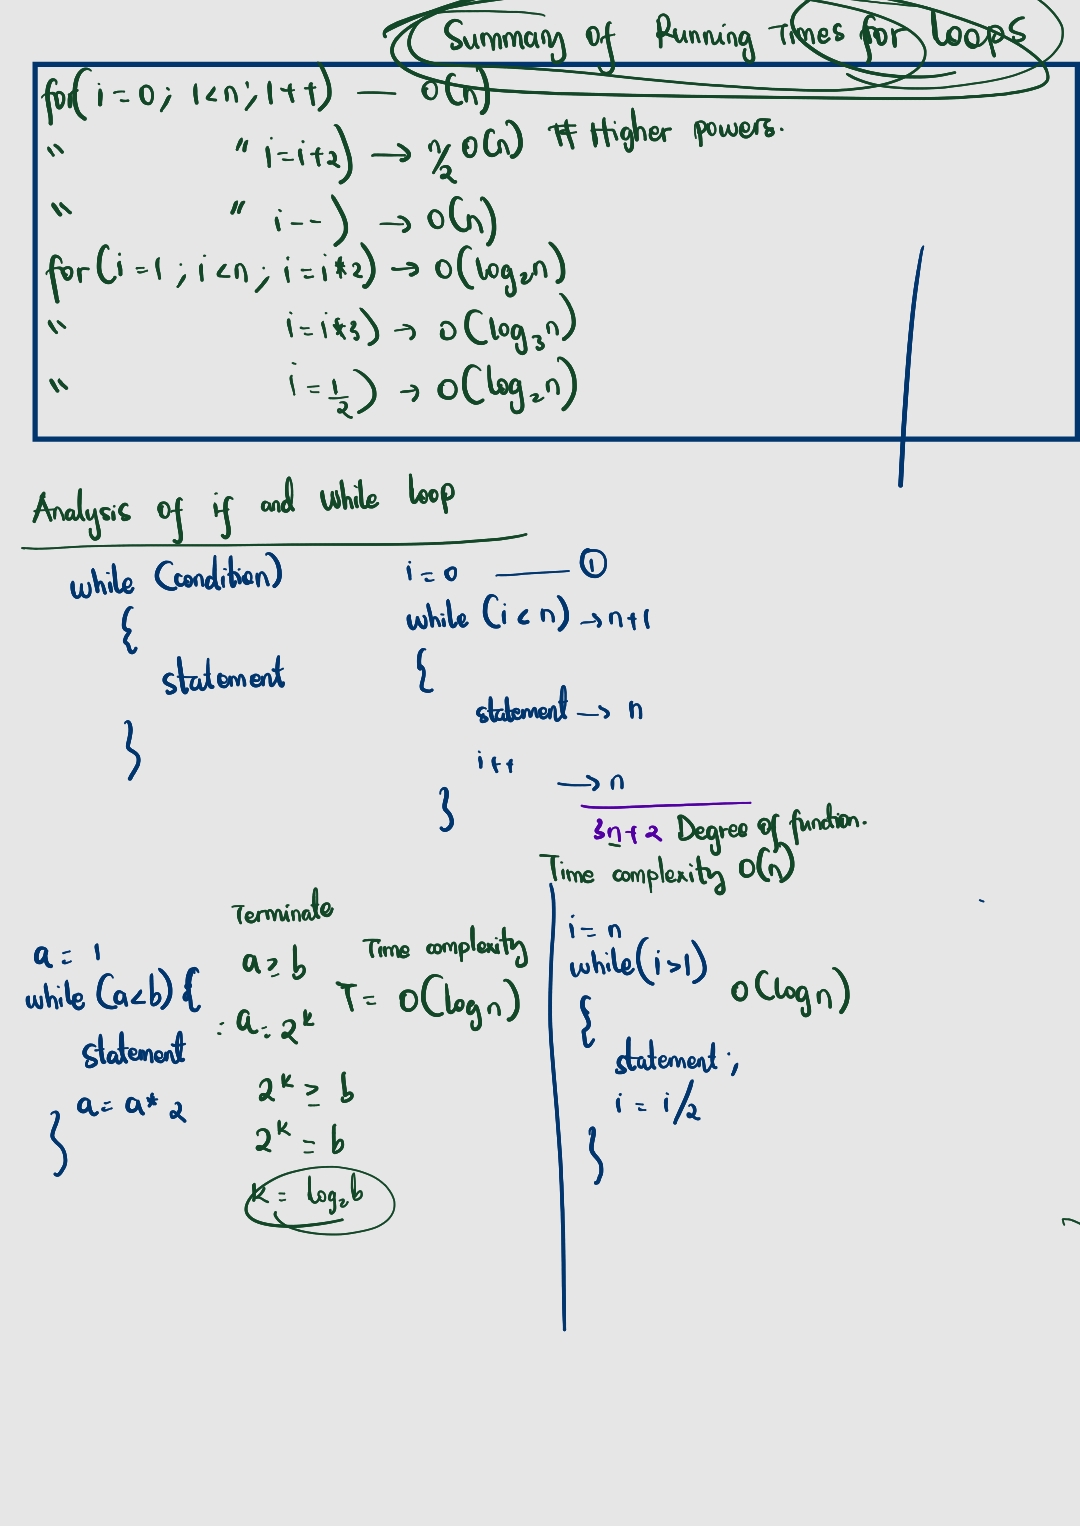 Summary of Running Times for loops
for(i=0; 1<n; 1++) — O(n)
" " i=i+2) → n/2 O(n) # Higher powers.
" " i--) → O(n)
for(i=1; i<n; i=i*2) → O(log₂n)
" i=i*3) → O(log₃n)
" i=1/2) → O(log₂n)
Analysis of if and while loop
while (condition)
{
statement
}
i=0 — ①
while (i<n) → n+1
{
statement → n
i++
→ n
}
3n+2 Degree of function.
Time complexity O(n)
a = 1
while (a<b) {
statement
a = a*2
}
Terminate
a ≥ b
= a = 2ᵏ
2ᵏ ≥ b
2ᵏ = b
k = log₂b
Time complexity
T = O(log n)
i = n
while(i>1)
{
statement;
i = i/2
}
O(log n)